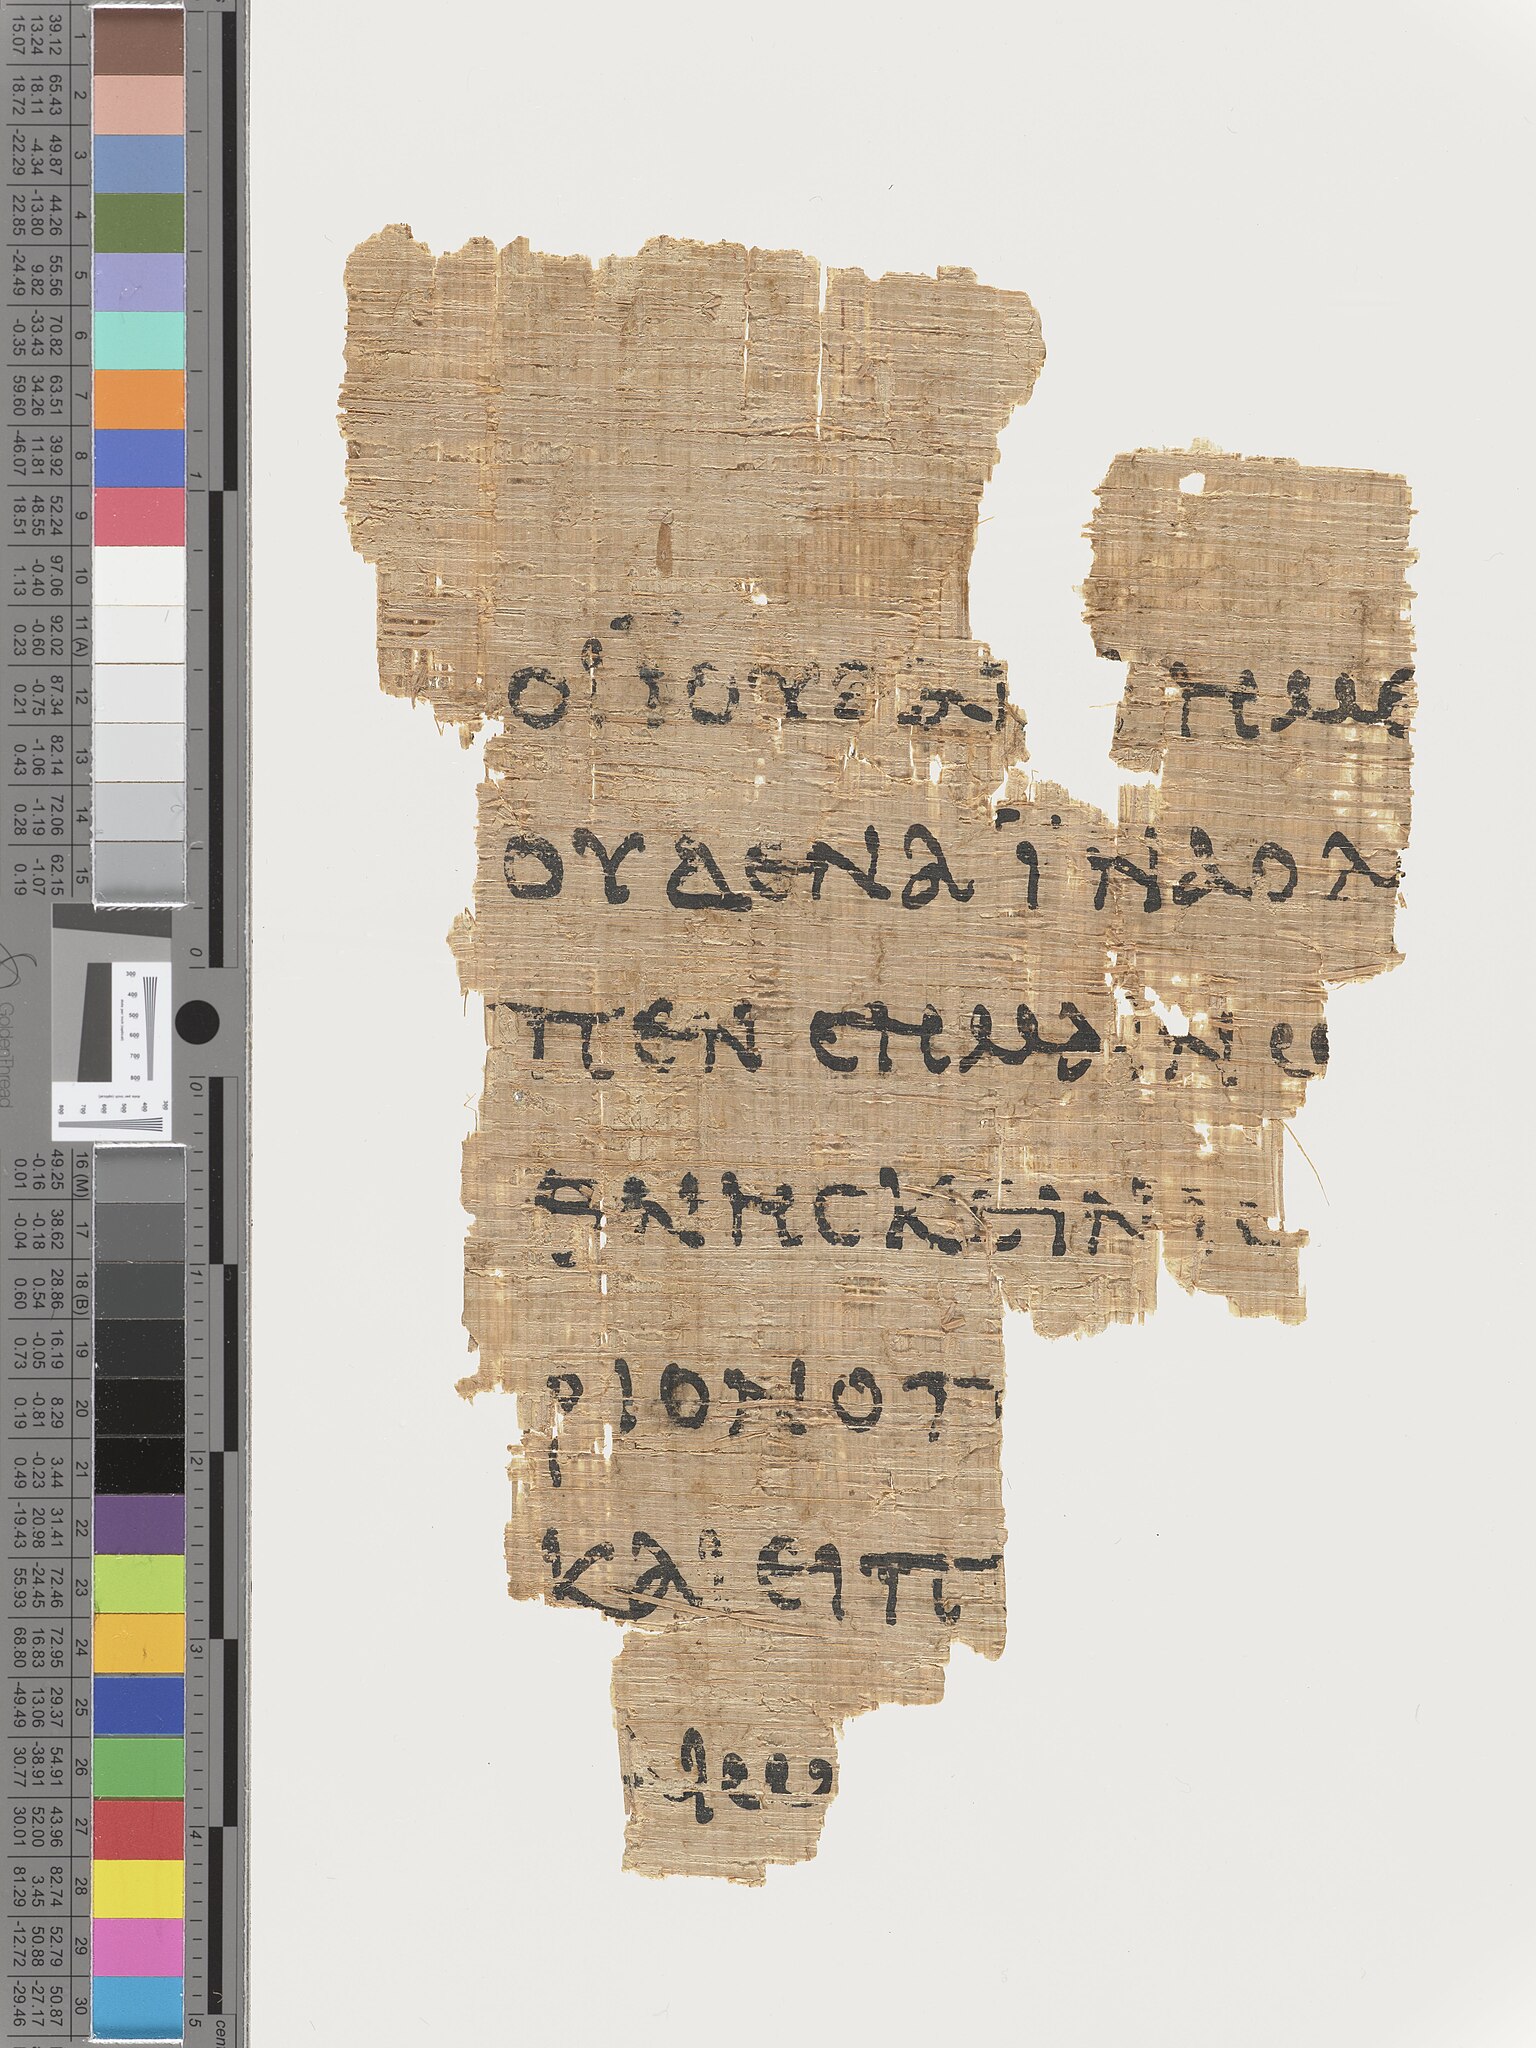 ΟΙ ΪΟΥΔΑΙ ΗΜΕ
ΟΥΔΕΝΑ ΪΝΑ Ο Λ
ΠΕΝ ϹΗΜΑΙΝΩ
ΘΝΗϹΚΕΙΝ ΙϹ
ΡΙΟΝ Ο Π
ΚΑΙ ΕΙΠ
ΑΙΩ
1 2 3 4 5 6 7 8 9 10 11 (A) 12 13 14 15
39.12 65.43 49.87 44.26 55.56 70.82 63.51 39.92 52.24 97.06 92.02 87.34 82.14 72.06 62.15
13.24 18.11 -4.34 -13.80 9.82 -33.43 34.26 11.81 48.55 -0.40 -0.60 -0.75 -1.06 -1.19 -1.07
15.07 18.72 -22.29 22.85 -24.49 -0.35 59.60 -46.07 18.51 1.13 0.23 0.21 0.43 0.28 0.19
16 (M) 17 18 (B) 19 20 21 22 23 24 25 26 27 28 29 30
49.25 38.62 28.86 16.19 8.29 3.44 31.41 72.46 72.95 29.37 54.91 43.96 82.74 52.79 50.87
-0.16 -0.18 0.54 -0.05 -0.81 -0.23 20.98 -24.45 16.83 13.06 -38.91 52.00 3.45 50.88 -27.17
0.01 -0.04 0.60 0.73 0.19 0.49 -19.43 55.93 68.80 -49.49 30.77 30.01 81.29 -12.72 -29.46
1 0
0 1 2 3 4 5 cen
GoldenThread